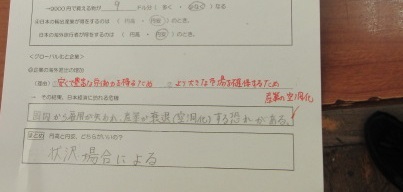 →10000円で買える物が 9 ドル分( 多く ・ 少なく )なる
④日本の輸出産業が得をするのは( 円高 ・ 円安 )のとき。
日本の海外旅行者が得をするのは( 円高 ・ 円安 )のとき。
<グローバル化と企業>
◎企業の海外進出の理由
(理由) ○安くて豊富な労働力を得るため ○より大きな市場を確保するため
→ その結果、日本経済に訪れる危機 産業の空洞化
国内から雇用が失われ、産業が衰退(空洞化)する恐れがある。
まとめ 円高と円安、どちらがいいの?
状況場合による